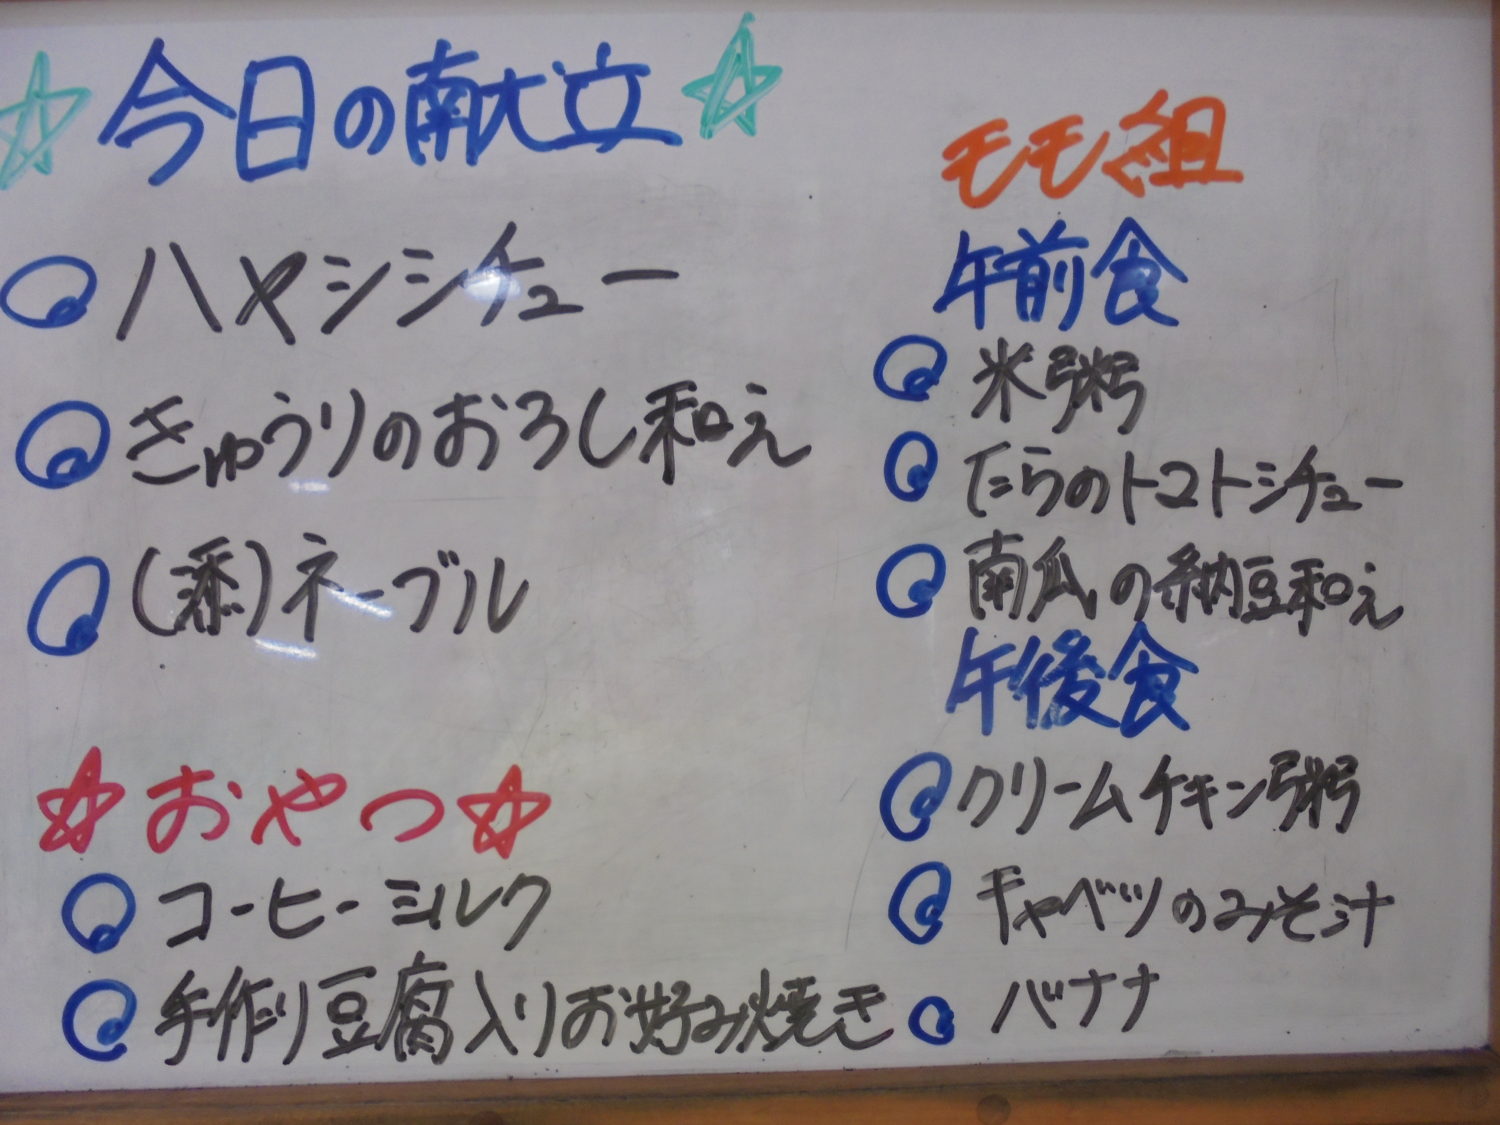 ☆今日の献立☆
ハヤシシチュー
きゅうりのおろし和え
(添)ネーブル
☆おやつ☆
コーヒーミルク
手作り豆腐入りお好み焼き
モモ組
午前食
米粥
たらのトマトシチュー
南瓜の納豆和え
午後食
クリームチキン粥
キャベツのみそ汁
バナナ